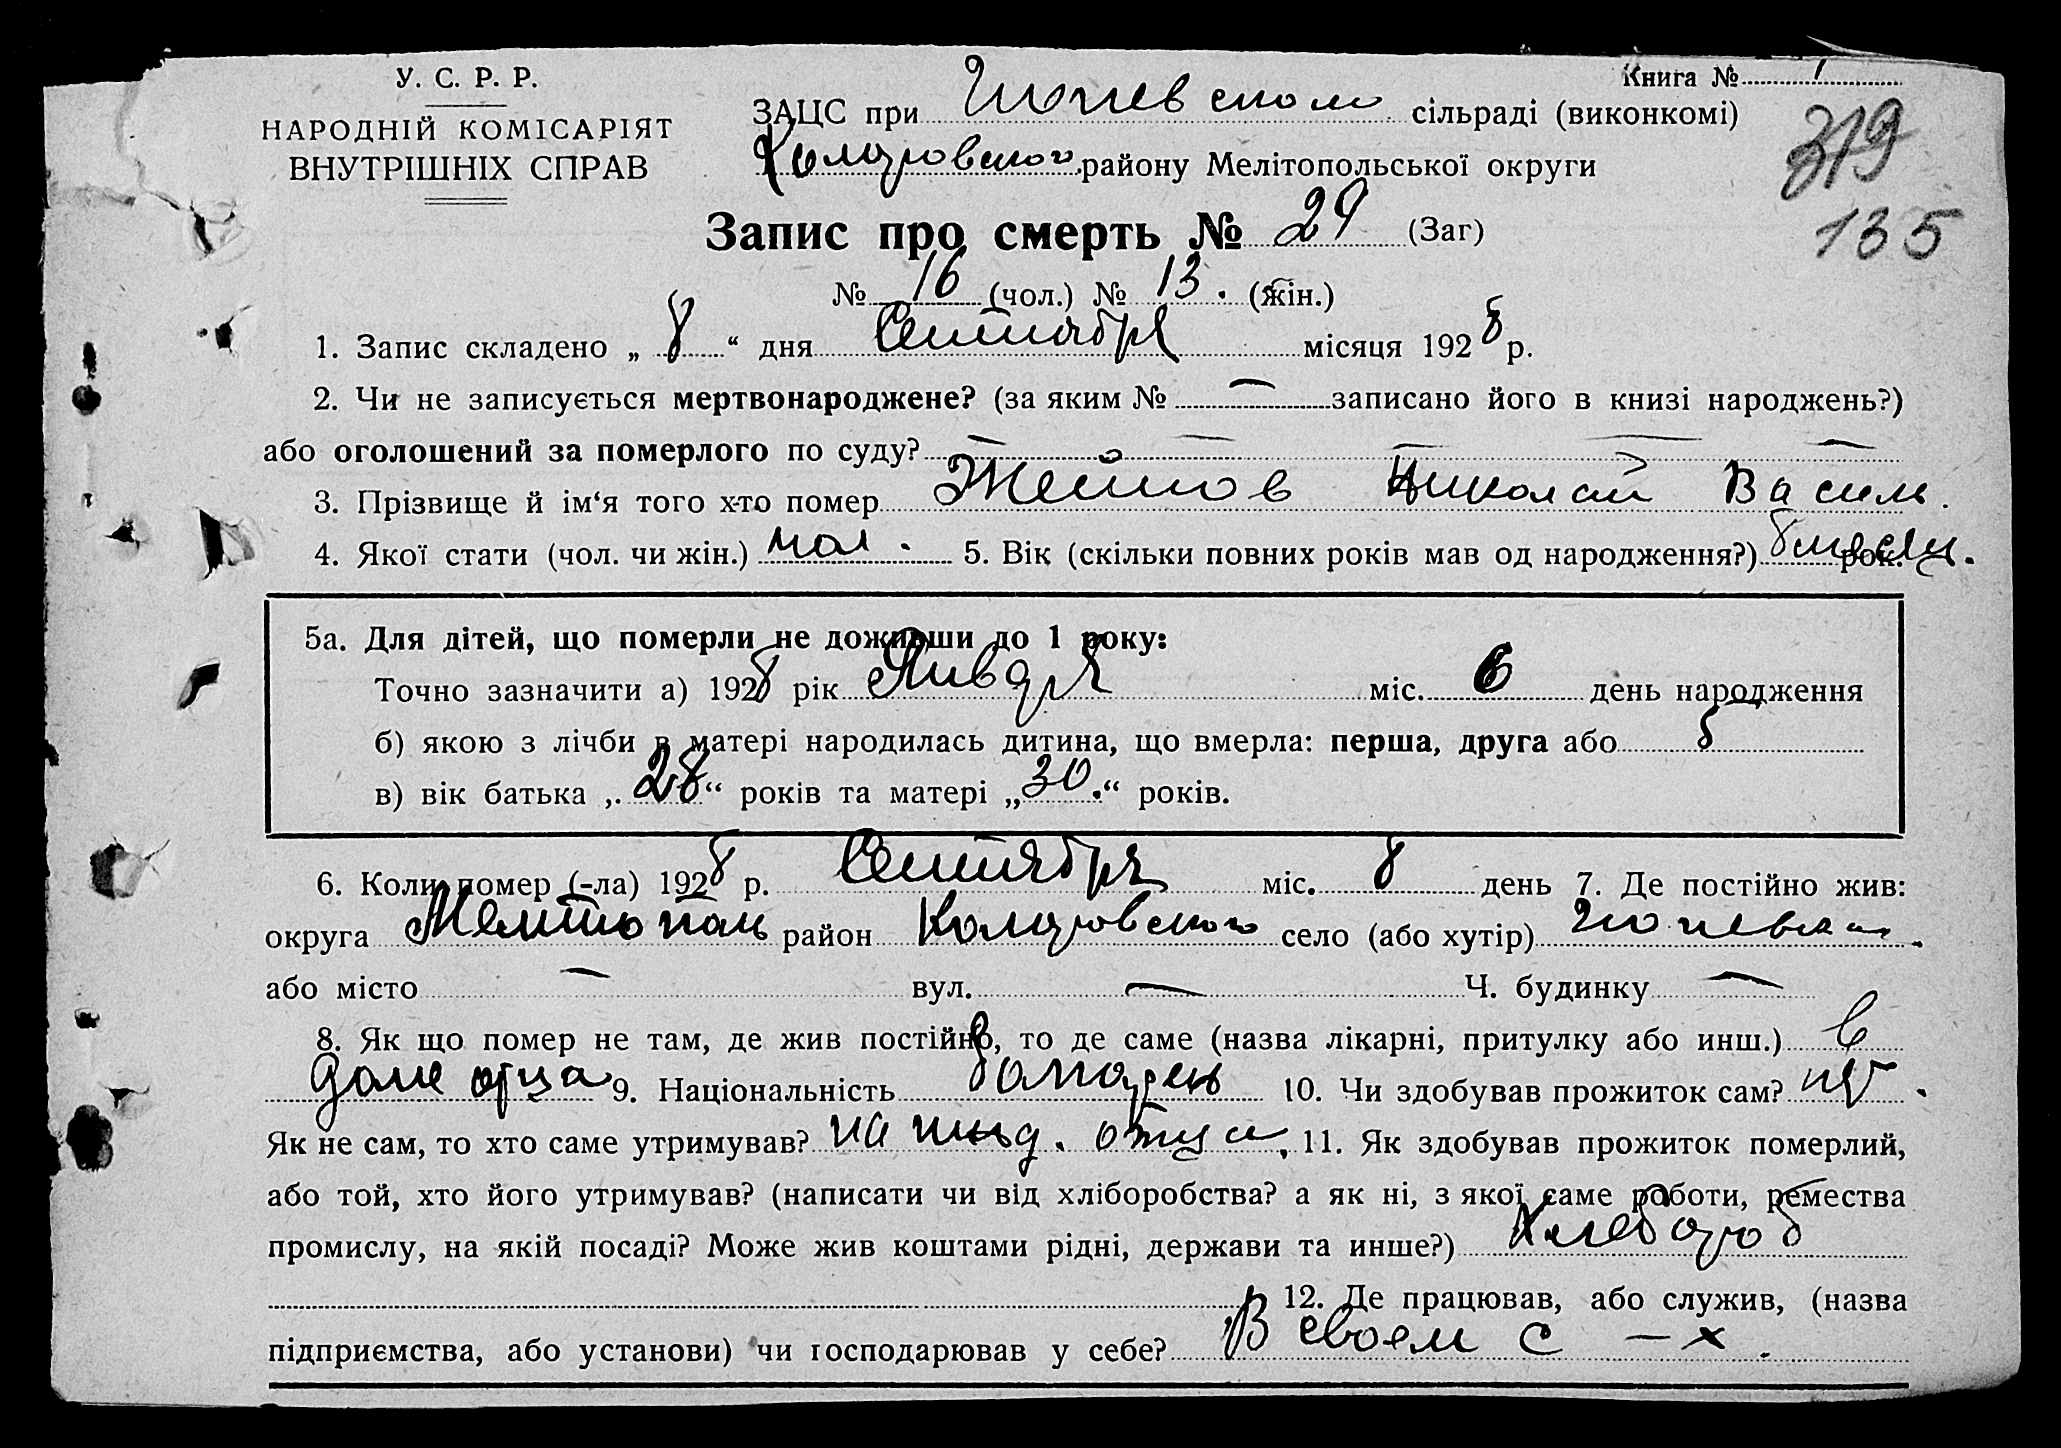 У. С. Р. Р.
НАРОДНІЙ КОМІСАРІЯТ
ВНУТРІШНІХ СПРАВ
Книга № 1
ЗАЦС при сільраді (виконкомі)
319
районy Мелітопольської округи
135
Запис про смерть № 29 (Заг)
№ 16 (чол.) № 13. (жін.)
1. Запис складено „ 8 “ дня Сентября місяця 1928 р.
2. Чи не записується мертвонароджене? (за яким № — записано його в книзі народжень?)
або оголошений за померлого по суду? — — — — —
3. Прізвище й ім‘я того хто помер Николай Василь.
4. Якої стати (чол. чи жін.) 5. Вік (скільки повних років мав од народження?) 8 месяц. рок.
5а. Для дітей, що померли не доживши до 1 року:
Точно зазначити а) 1928 рік Января міс. 6 день народження
б) якою з лічби в матері народилась дитина, що вмерла: перша, друга або 5
в) вік батька „ 28 “ років та матері „ 30. “ років.
6. Коли помер (-ла) 1928 р. Сентября міс. 8 день 7. Де постійно жив:
округа Мелитополь район Коларовского село (або хутір)
або місто — вул. — Ч. будинку —
8. Як що помер не там, де жив постійно, то де саме (назва лікарні, притулку або инш.) в
доме отца 9. Національність болгарень 10. Чи здобував прожиток сам? нет.
Як не сам, то хто саме утримував? на ижд. отца, 11. Як здобував прожиток померлий,
або той, хто його утримував? (написати чи від хліборобства? а як ні, з якої саме роботи, ремества
промислу, на якій посаді? Може жив коштами рідні, держави та инше?) Хлебороб
12. Де працював, або служив, (назва
підприємства, або установи) чи господарював у себе? В своем с-х.